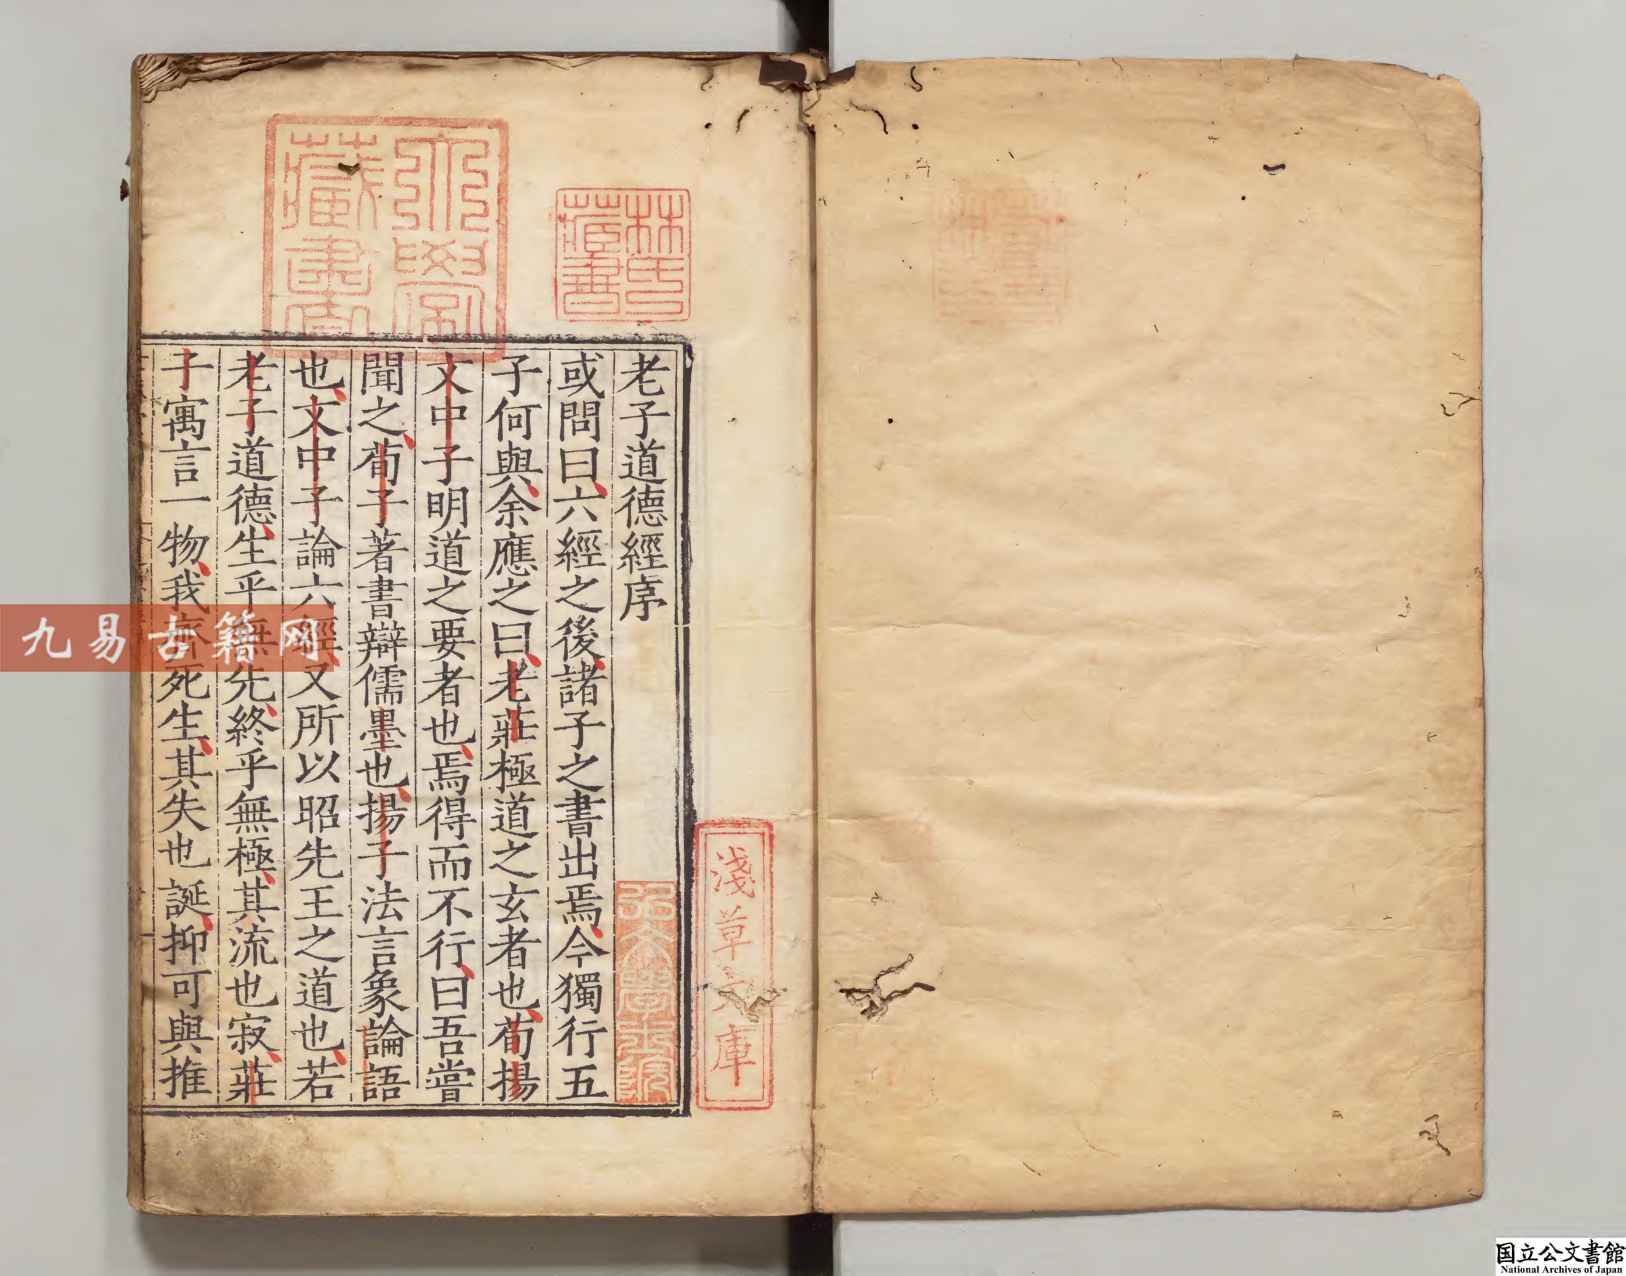 老子道德經序
或問曰六經之後諸子之書出焉今獨行五
子何與余應之曰老莊極道之玄者也荀揚
文中子明道之要者也焉得而不行曰吾嘗
聞之荀子著書辯儒墨也揚子法言象論語
也文中子論六經又所以昭先王之道也若
老子道德生乎無先終乎無極其流也寂莊
子寓言一物我齊死生其失也誕抑可與推
林氏藏書
淺草文庫
九易古籍网
国立公文書館
National Archives of Japan